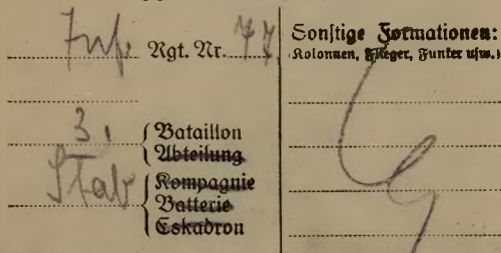 Inf. Rgt. Nr. 77.
3. Bataillon
Abteilung
Stab Kompagnie
Batterie
Eskadron
Sonstige Formationen:
(Kolonnen, Flieger, Funker usw.)